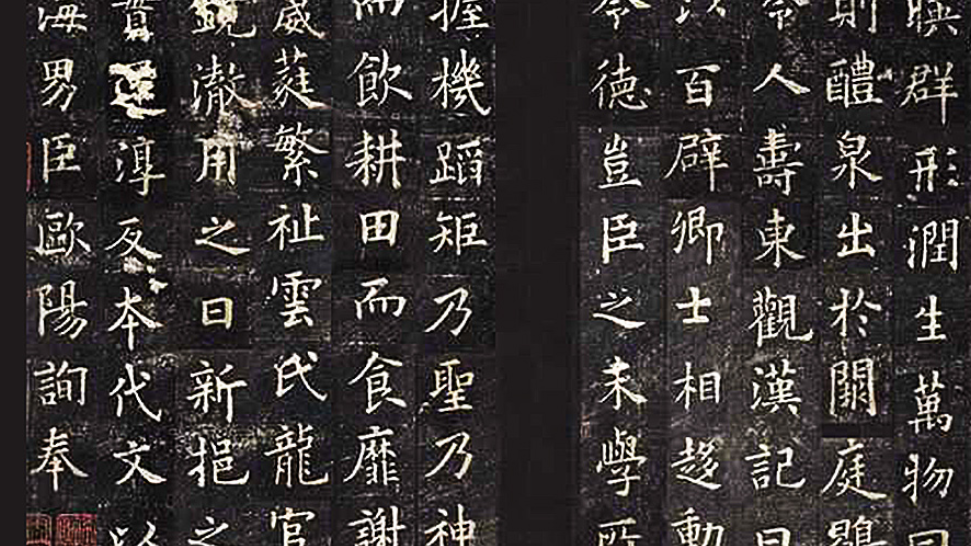 暎群形潤生萬物同
則醴泉出於闕庭鶡
令人壽東觀漢記曰
以百辟卿士相趍動
令德豈臣之末學所
握機蹈矩乃聖乃神
而飲耕田而食靡謝
葳蕤繁祉雲氏龍官
鏡澈用之日新挹之
還淳反本代文以
海男臣歐陽詢奉